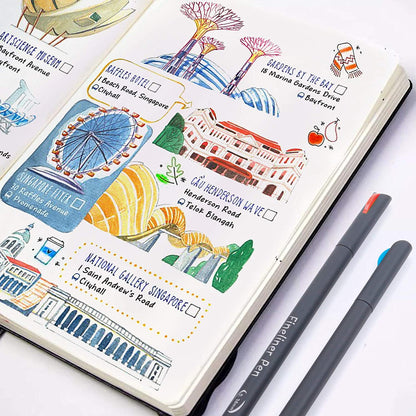 ARTSCIENCE MUSEUM
Bayfront Avenue
Bayfront
GARDENS BY THE BAY
18 Marina Gardens Drive
Bayfront
RAFFLES HOTEL
1 Beach Road, Singapore
Cityhall
CẦU HENDERSON WAVE
Henderson Road
Telok Blangah
SINGAPORE FLYER
30 Raffles Avenue
Promenade
NATIONAL GALLERY SINGAPORE
1 Saint Andrew's Road
Cityhall
Fineliner Pen